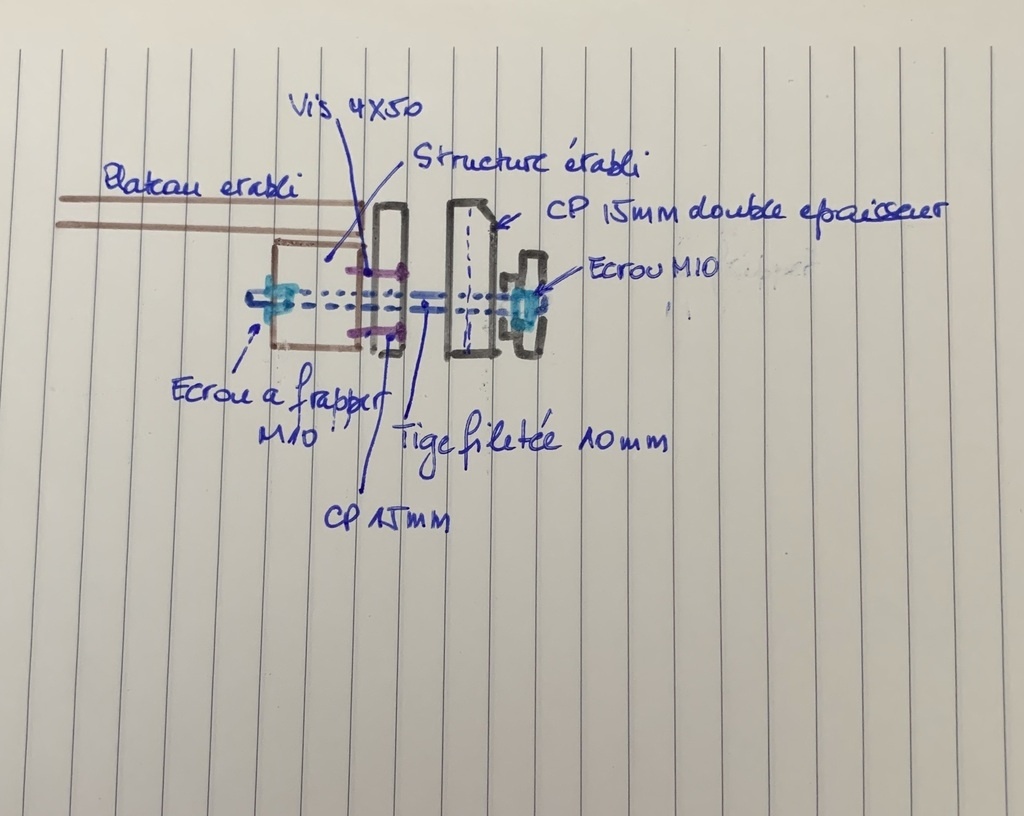 Vis 4x50
Structure établi
Plateau etabli
CP 15mm double epaisseur
Ecrou M10
Ecrou a frapper
M10
Tige filetée 10mm
CP 15mm